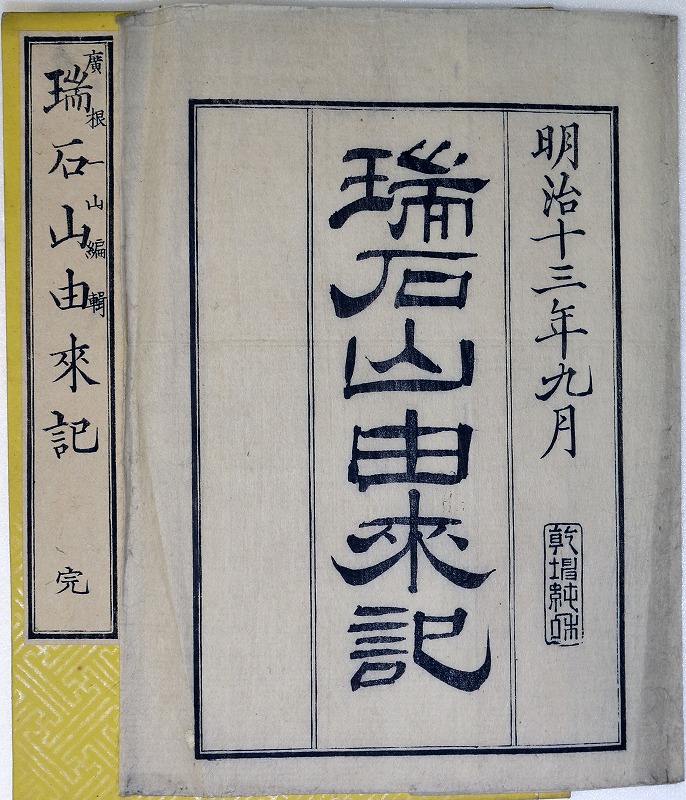 明治十三年九月
瑞石山由來記
廣根一山編輯
瑞石山由來記
完